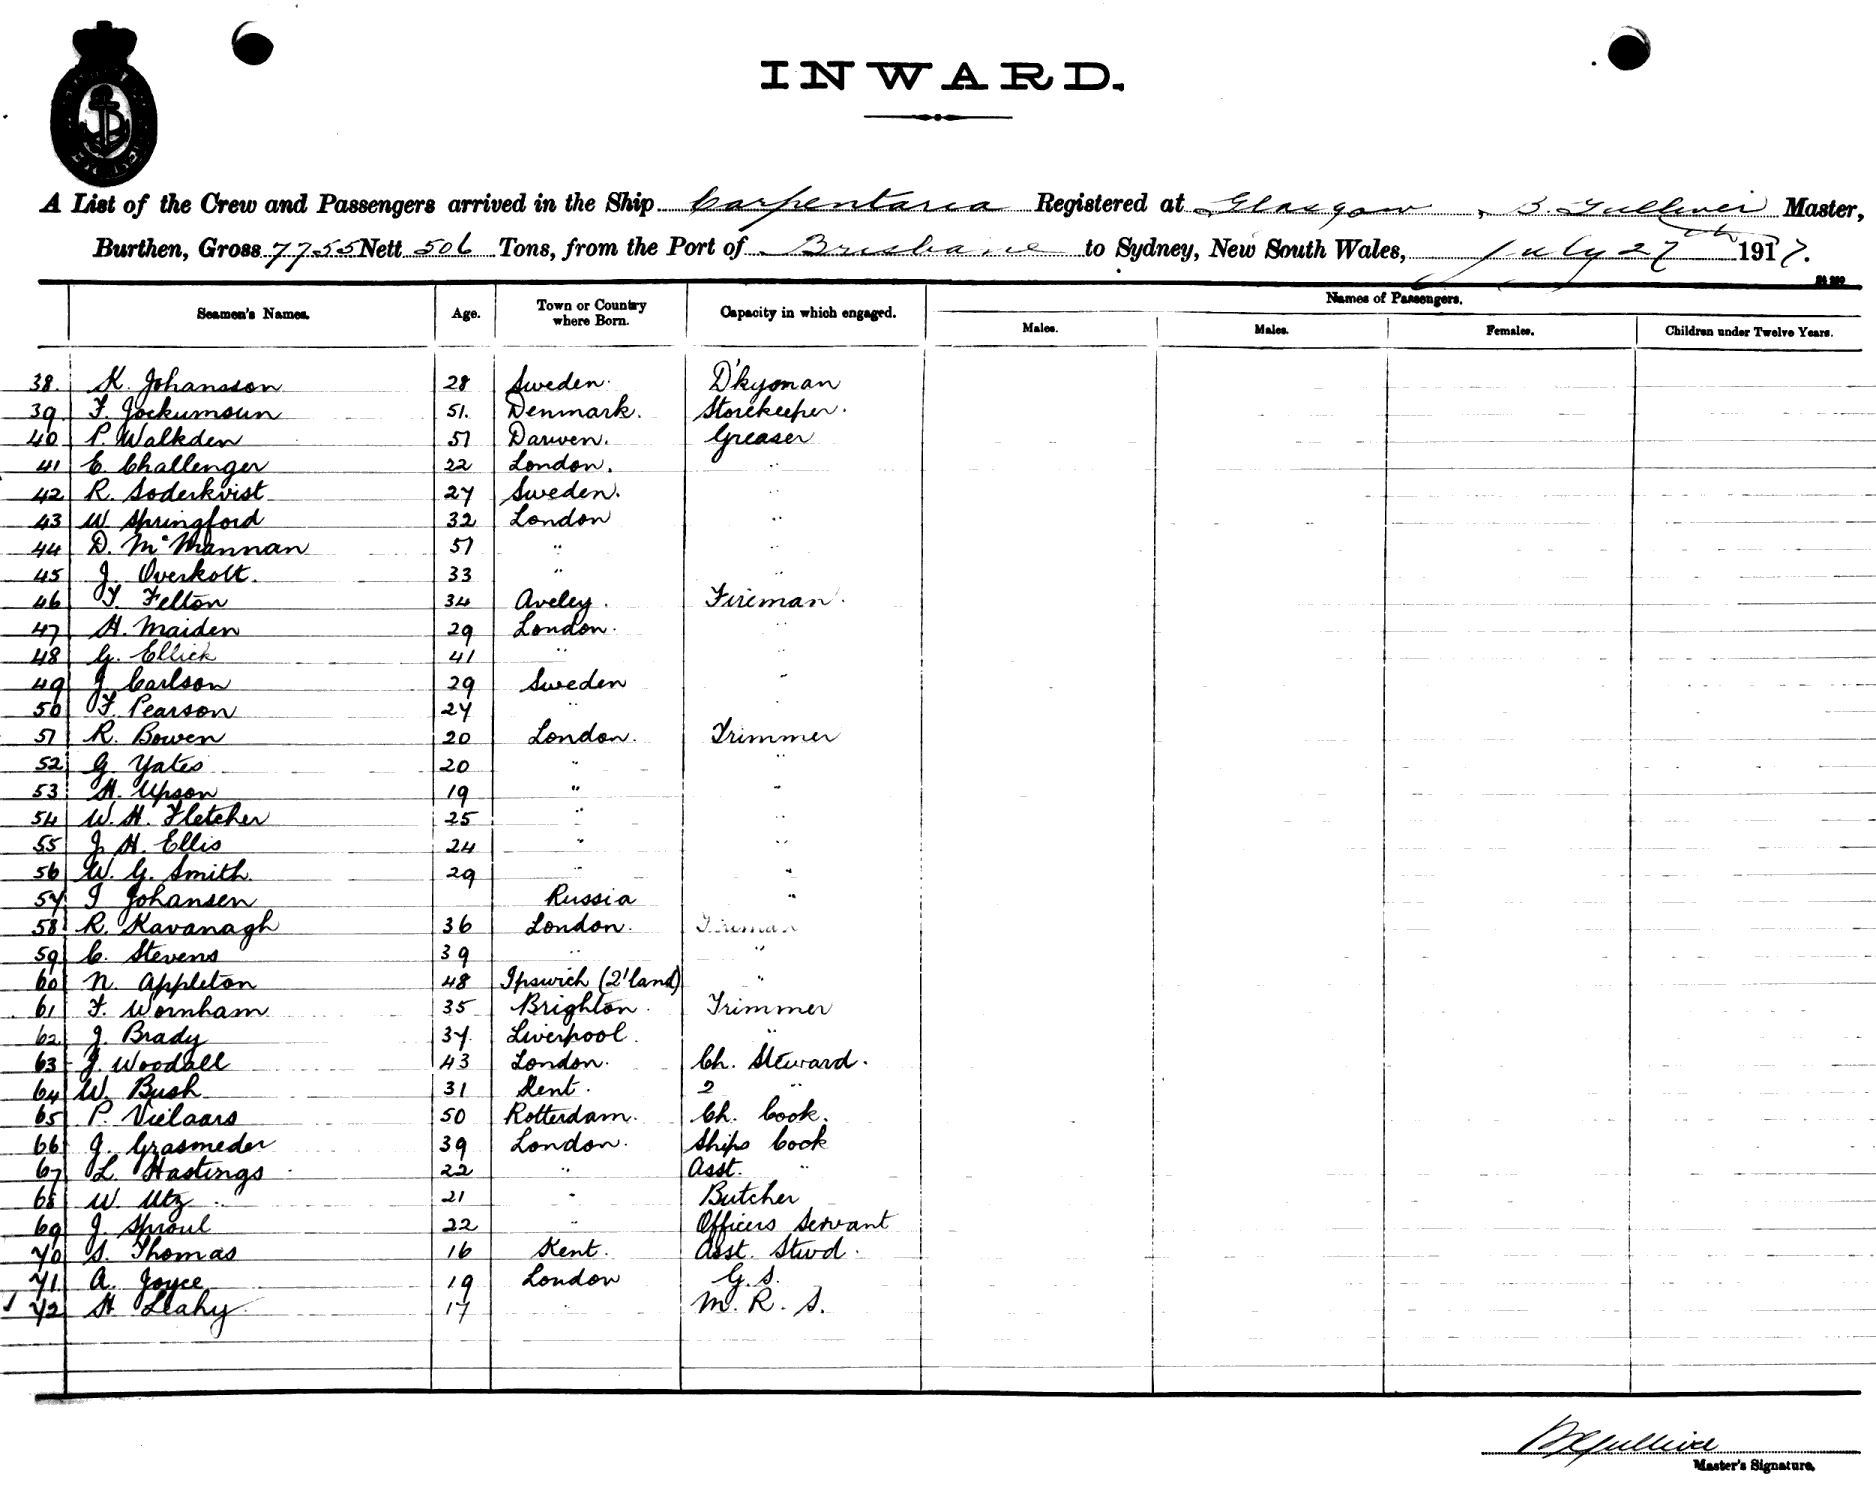 INWARD.
A List of the Crew and Passengers arrived in the Ship Carpentaria Registered at Glasgow, B. Gulliver Master,
Burthen, Gross 7755 Nett 506 Tons, from the Port of Brisbane to Sydney, New South Wales, July 27th 1917.
Names of Passengers.
Seamen's Names. Age. Town or Country where Born. Capacity in which engaged. Males. Males. Females. Children under Twelve Years.
38. K. Johansson 28 Sweden. D'kyman
39. F. Jockumsun 51. Denmark. Storekeeper.
40 P. Walkden 51 Darwen. Greaser
41 E. Challenger 22 London. "
42 R. Soderkvist 27 Sweden. "
43 W Springford 32 London "
44 D. McMannan 51 " "
45 J. Overkott. 33 " "
46 T. Felton 34 Aveley. Fireman.
47 H. Maiden 29 London. "
48 G. Ellick 41 " "
49 J Carlson 29 Sweden "
50 F. Pearson 27 " "
51 R. Bowen 20 London. Trimmer
52 G Yates 20 " "
53 H. Upson 19 " "
54 W. H. Fletcher 25 " "
55 J. H. Ellis 24 " "
56 W. G. Smith. 29 " "
57 I Johansen Russia "
58 R. Kavanagh 36 London. Fireman
59 C. Stevens 39 " "
60 N. Appleton 48 Ipswich (2'land) "
61 F. Wornham 35 Brighton. Trimmer
62 J. Brady 37. Liverpool. "
63 J. Woodall 43 London. Ch. Steward.
64 W. Bush 31 Kent. 2 "
65 P. Vielaars 50 Rotterdam. Ch. Cook.
66 J. Grasmeder 39 London. Ships Cook
67 L. Hastings 22 " Asst. "
68 W. Utz 21 " Butcher
69 J. Sproul 22 " Officers Servant
70 S. Thomas 16 Kent. Asst. Stwd.
71. A. Joyce 19 London G. S.
72 H Leahy 17 " M. R. S.
B Gulliver
Master's Signature.